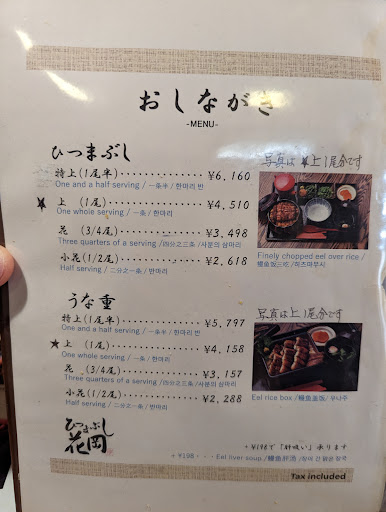 おしながき
-MENU-
ひつまぶし
特上(1尾半)・・・・・・・・・・¥6,160
One and a half serving / 一条半 / 한마리 반
★ 上 (1尾)・・・・・・・・・・¥4,510
One whole serving / 一条 / 한마리
花 (3/4尾)・・・・・・・・・・¥3,498
Three quarters of a serving / 四分之三条 / 사분의 삼마리
小花(1/2尾)・・・・・・・・・・¥2,618
Half serving / 二分之一条 / 반마리
写真は★上1尾分です
Finely chopped eel over rice /
鳗鱼饭三吃 / 히츠마부시
うな重
特上(1尾半)・・・・・・・・・・¥5,797
One and a half serving / 一条半 / 한마리 반
★ 上 (1尾)・・・・・・・・・・¥4,158
One whole serving / 一条 / 한마리
花 (3/4尾)・・・・・・・・・・¥3,157
Three quarters of a serving / 四分之三条 / 사분의 삼마리
小花(1/2尾)・・・・・・・・・・¥2,288
Half serving / 二分之一条 / 반마리
写真は上1尾分です
Eel rice box / 鳗鱼盖饭 / 우나주
ひつまぶし
花岡
+¥198で「肝吸い」承ります
+ ¥198・・・Eel liver soup / 鳗鱼肝汤 /
Tax included